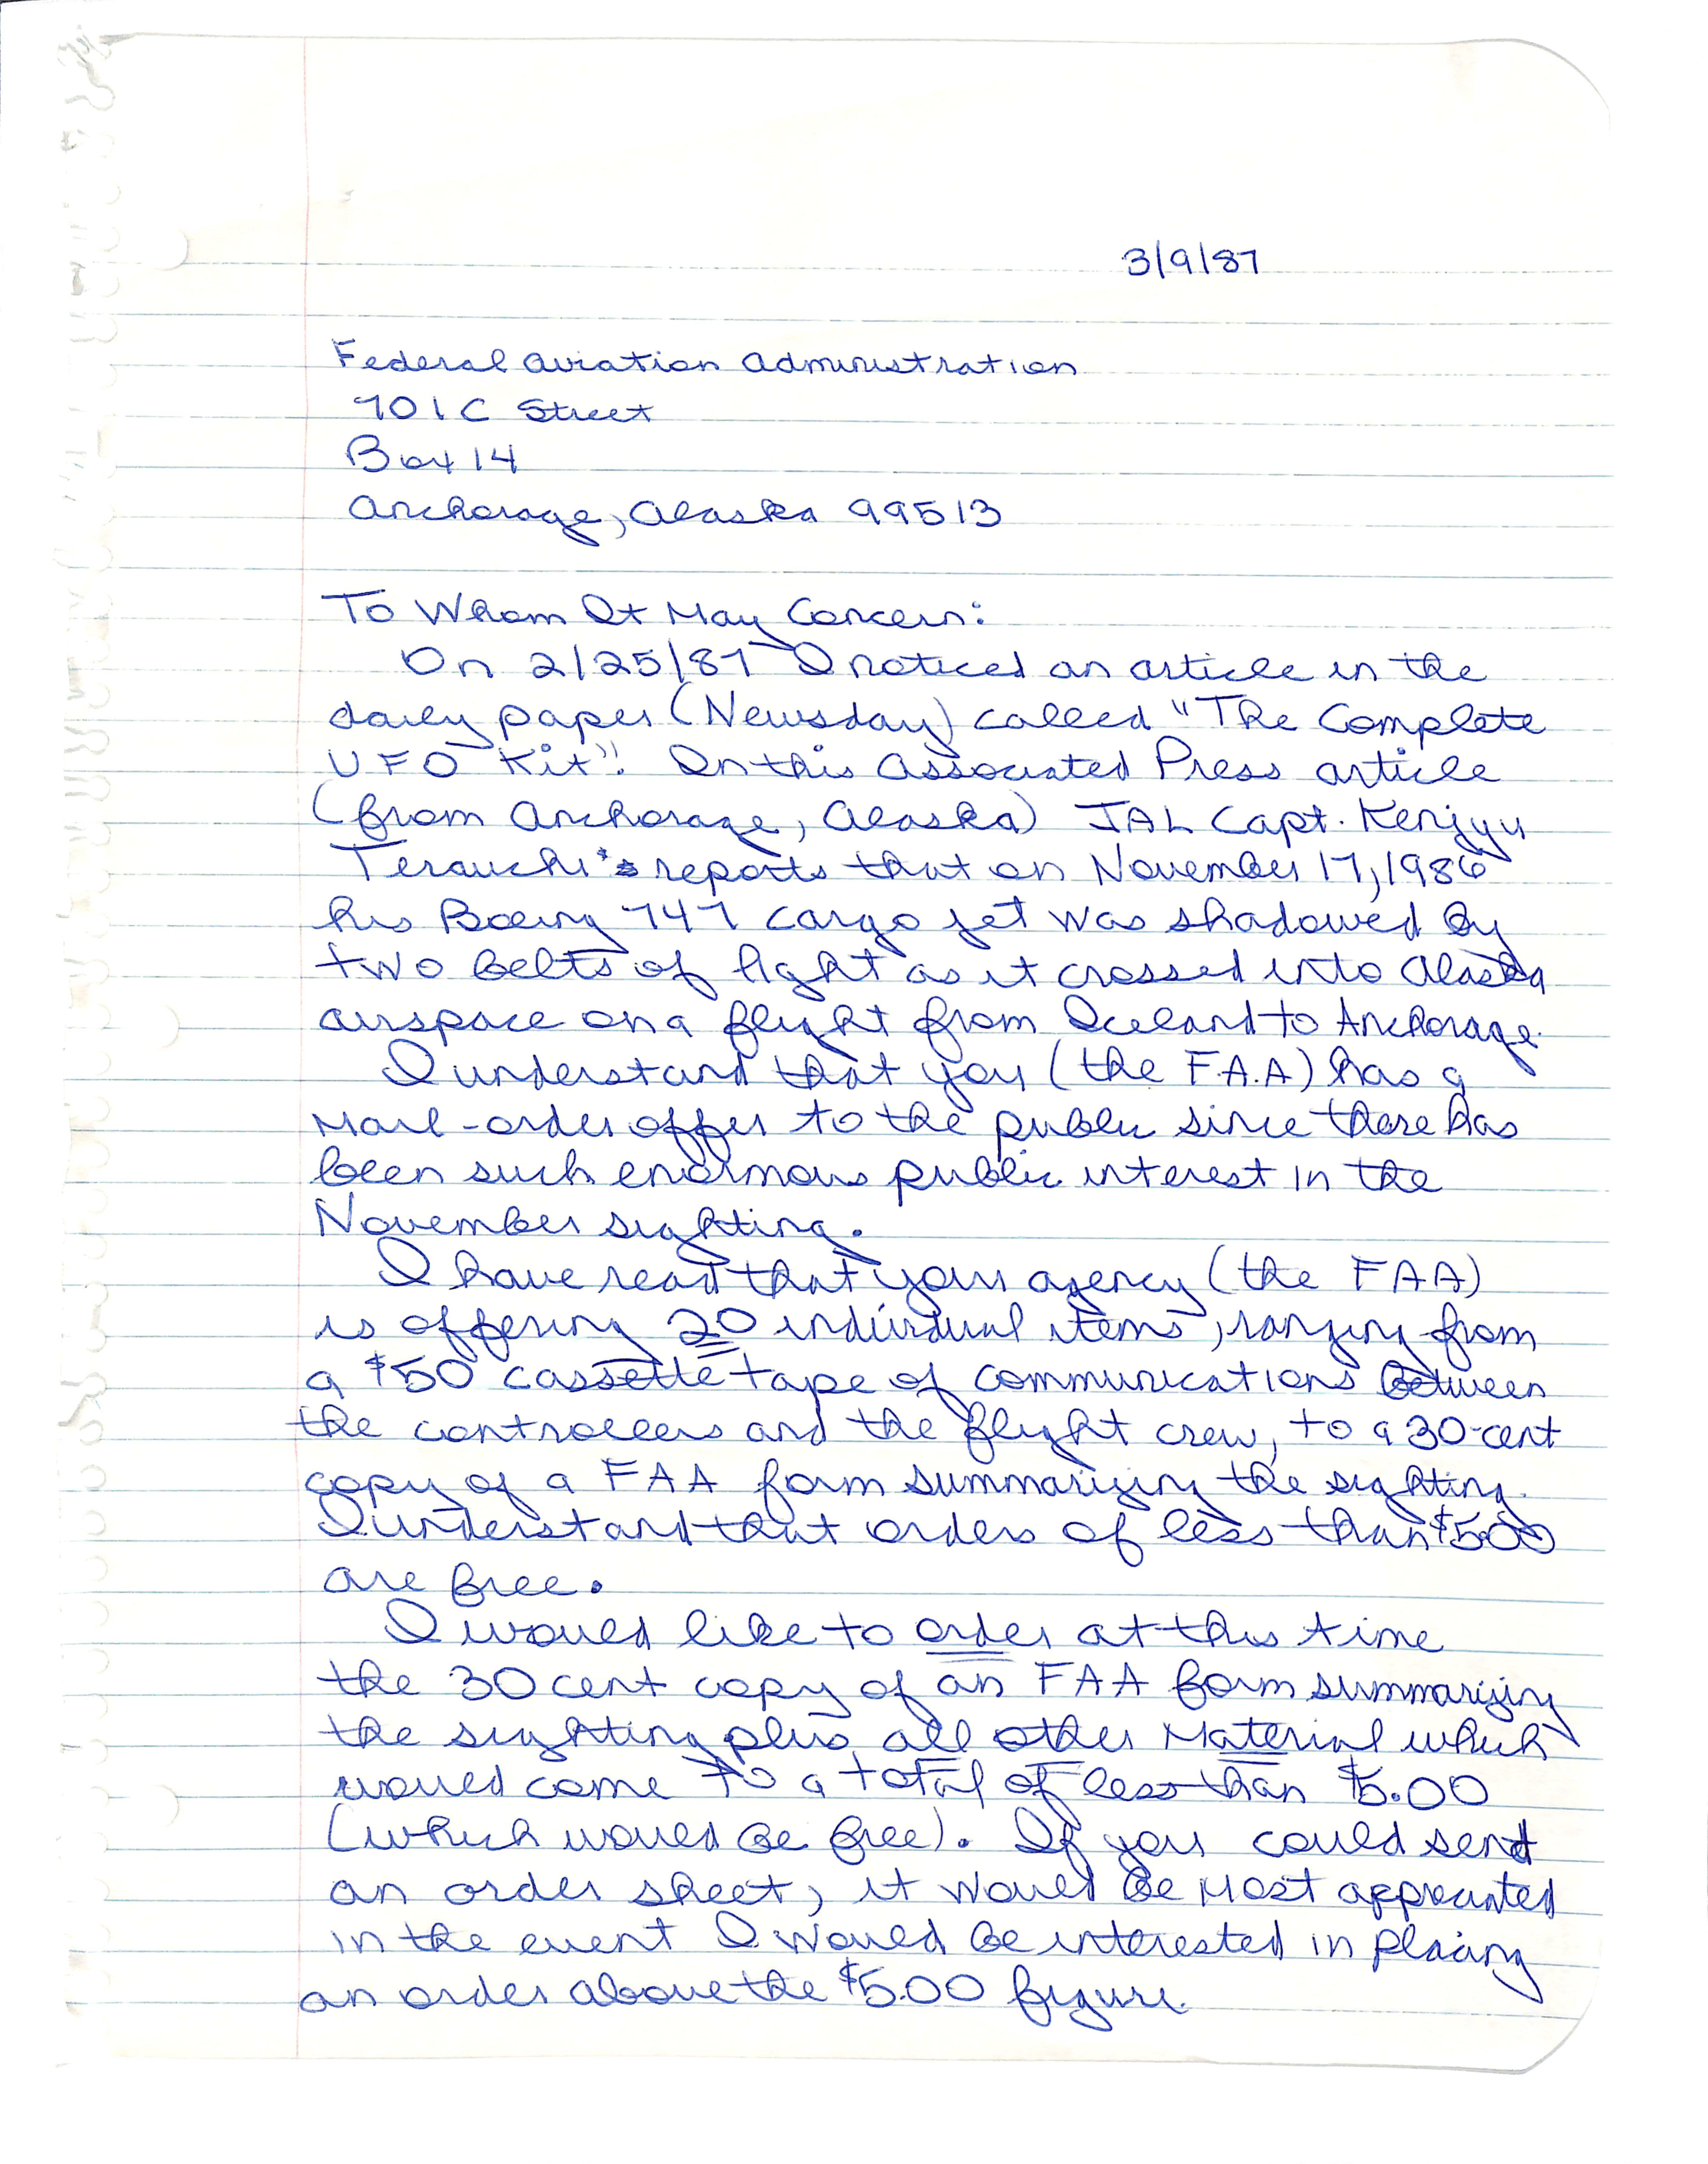 3/9/87
Federal Aviation Administration
701 C Street
Box 14
Anchorage, Alaska 99513
To Whom It May Concern:
On 2/25/87 I noticed an article in the
daily paper (Newsday) called "The Complete
UFO Kit". In this Associated Press article
(from Anchorage, Alaska) JAL Capt. Kenjyu
Terauchi's reports that on November 17, 1986
his Boeing 747 cargo jet was shadowed by
two belts of light as it crossed into Alaska
airspace on a flight from Iceland to Anchorage.
I understand that you (the F.A.A) has a
mail-order offer to the public since there has
been such enormous public interest in the
November sighting.
I have read that your agency (the FAA)
is offering 20 individual items, ranging from
a $50 cassette tape of communications between
the controllers and the flight crew, to a 30-cent
copy of a FAA form summarizing the sighting.
I understand that orders of less than $5.00
are free.
I would like to order at this time
the 30 cent copy of an FAA form summarizing
the sighting plus all other material which
would come to a total of less than $5.00
(which would be free). If you could send
an order sheet, it would be most appreciated
in the event I would be interested in placing
an order above the $5.00 figure.